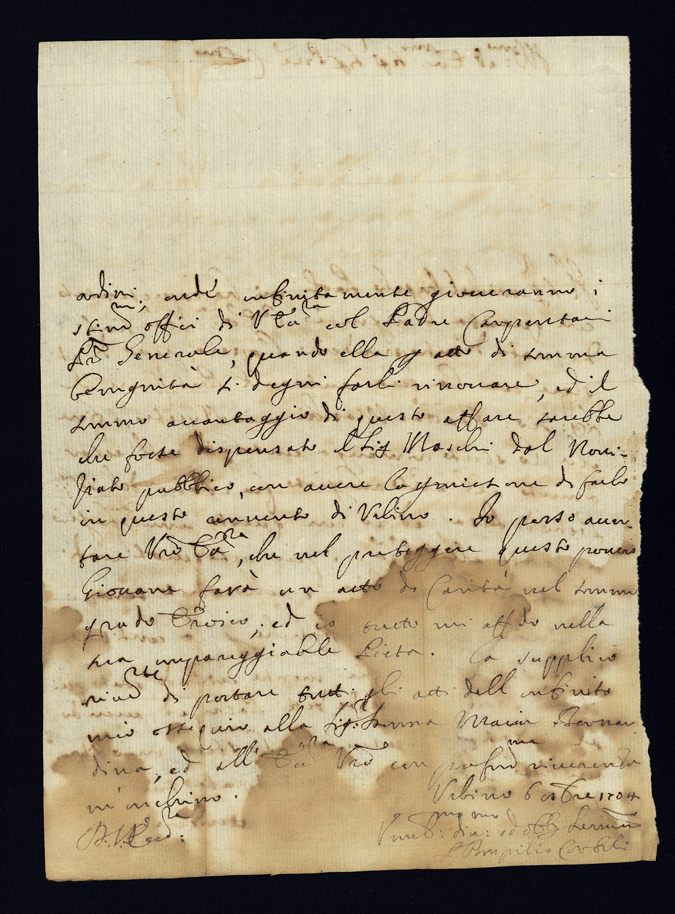 ordini; onde infinitamente gioveranno i
stimmi offici di V Eccza col Padre Carpentani
Generale, quando ella p atto di somma
benignità si degni farli rinovare, ed il
sommo avantaggio di questo affare sarebbe
che fosse dispensato il Sig Maschi dal Novi-
ziato pubblico, con avere la permissione di farlo
in questo convento di Urbino. Io posso accer-
tare che nel proteggere questo povero
Giovane farà un atto di Carità nel sommo
grado Eroico; ed io tutto mi affido nella
sua impareggiabile Pietà. La supplico
di portare tutti gli atti dell infinito
mio ossequio alla Sigra Donna Maria Bernar-
dina, ed all con profmo riverente
m'inchino.
Urbino 6 1704
Pompilio